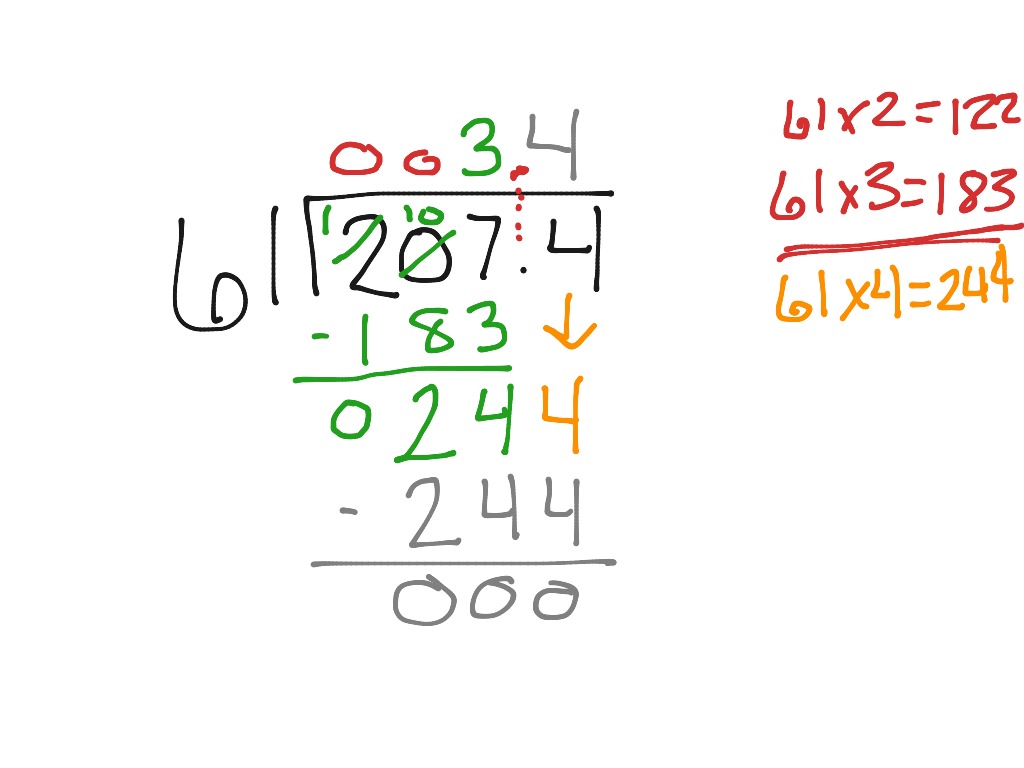 0 0 3 . 4
61 207.4
1 10
- 183
0244
- 244
000
61 x 2 = 122
61 x 3 = 183
61 x 4 = 244